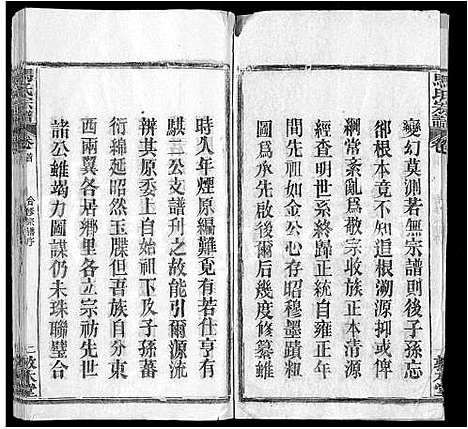 馬氏宗譜 卷
變幻莫測若無宗譜則後子孫忘
郤根本茫然不知追根溯源抑或俾
綱常紊亂爲敬宗收族正本清源
經查明世系終歸正統自雍正年
間先祖如金公心存昭穆墨蹟粗
圖爲承先啟後爾後幾度修纂雖
敦本堂
時久年煙原編難覓有若仕亨有
騏三公支譜刋之故能引爾源流
辨其原委上自始祖下及子孫蕃
衍綿延昭然玉牒但吾族自分東
西兩翼各居鄉里各立宗祊先世
諸公雖竭力圖謀仍未珠聯璧合
馬氏宗譜 卷首 合修宗譜序 二 敦本堂